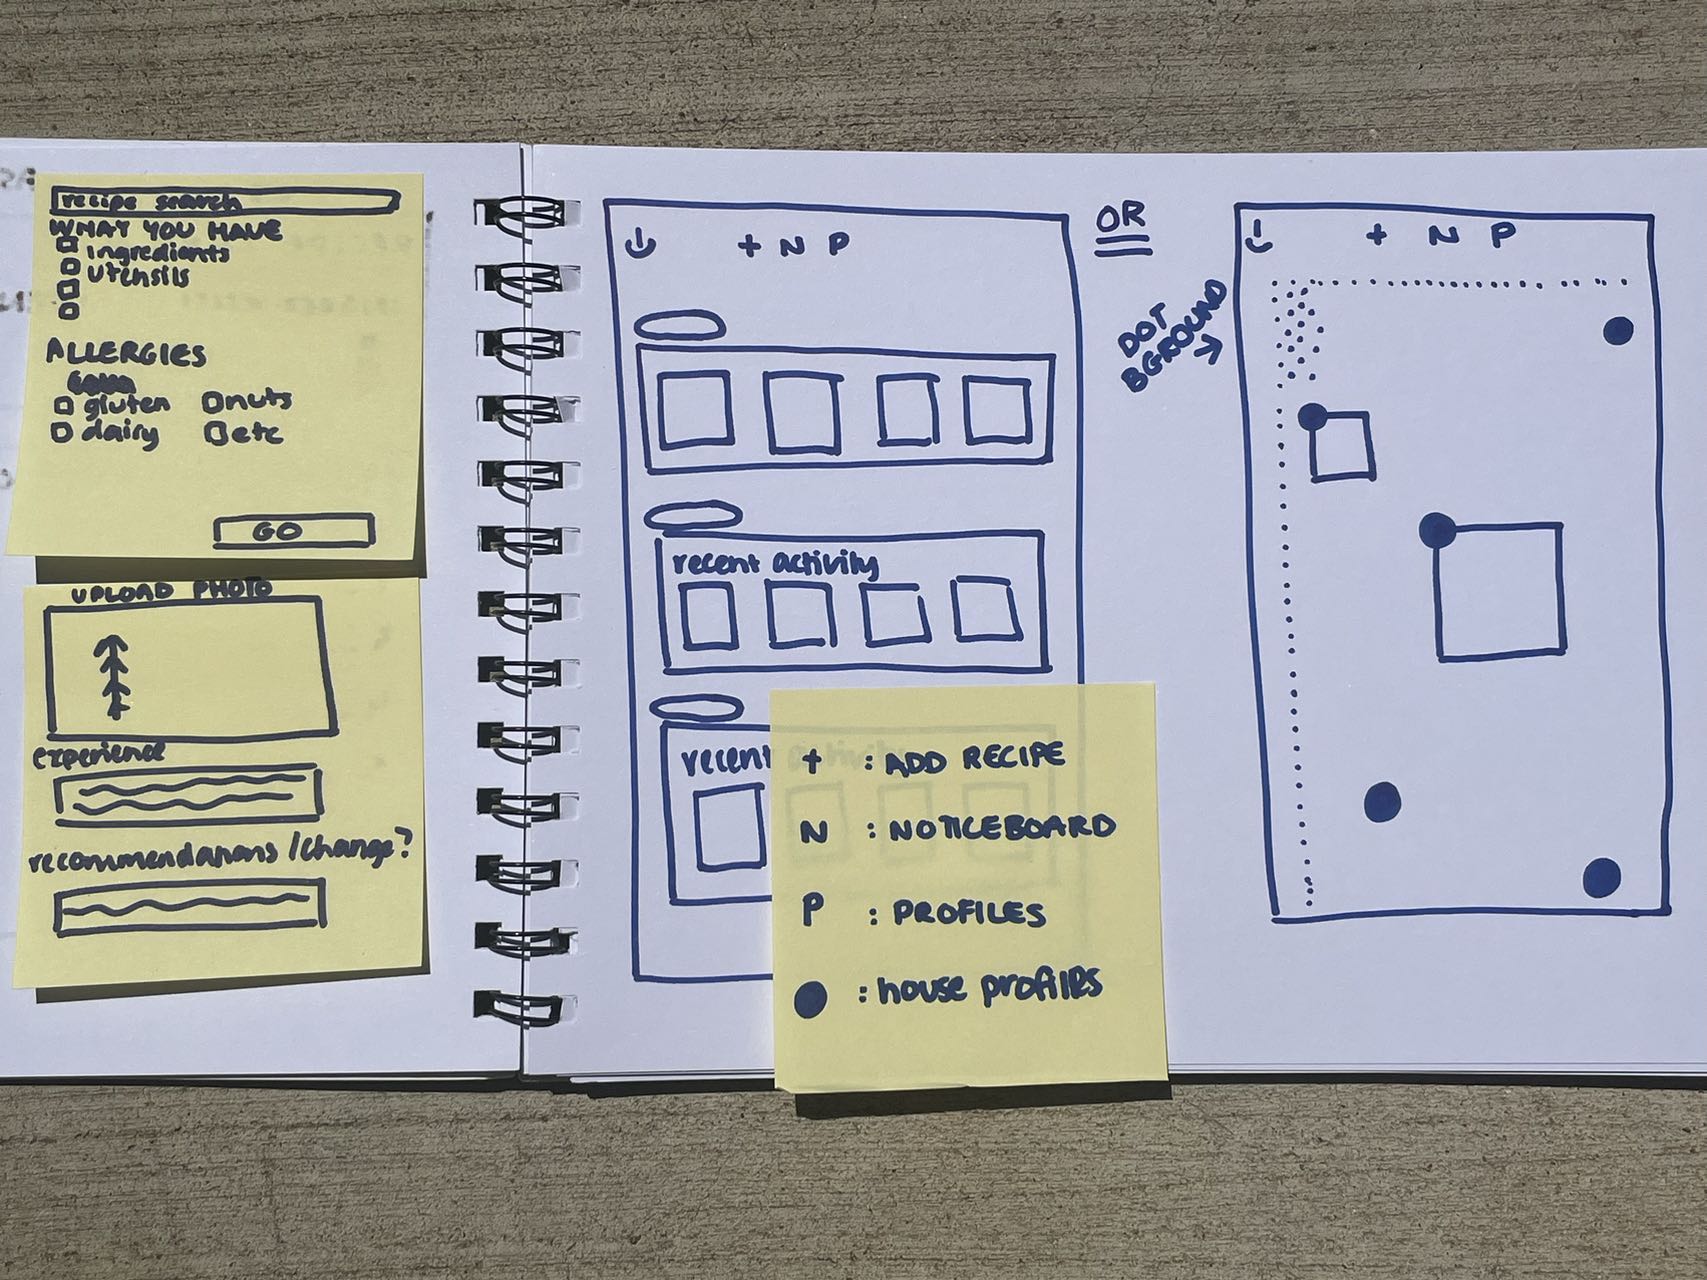 recipe search
WHAT YOU HAVE
ingredients
utensils
ALLERGIES
gluten nuts
dairy etc
GO
UPLOAD PHOTO
experience
recommendations /change?
+ N P
recent activity
recent activity
+ : ADD RECIPE
N : NOTICEBOARD
P : PROFILES
: house profiles
OR
DOT
BGROUND
+ N P